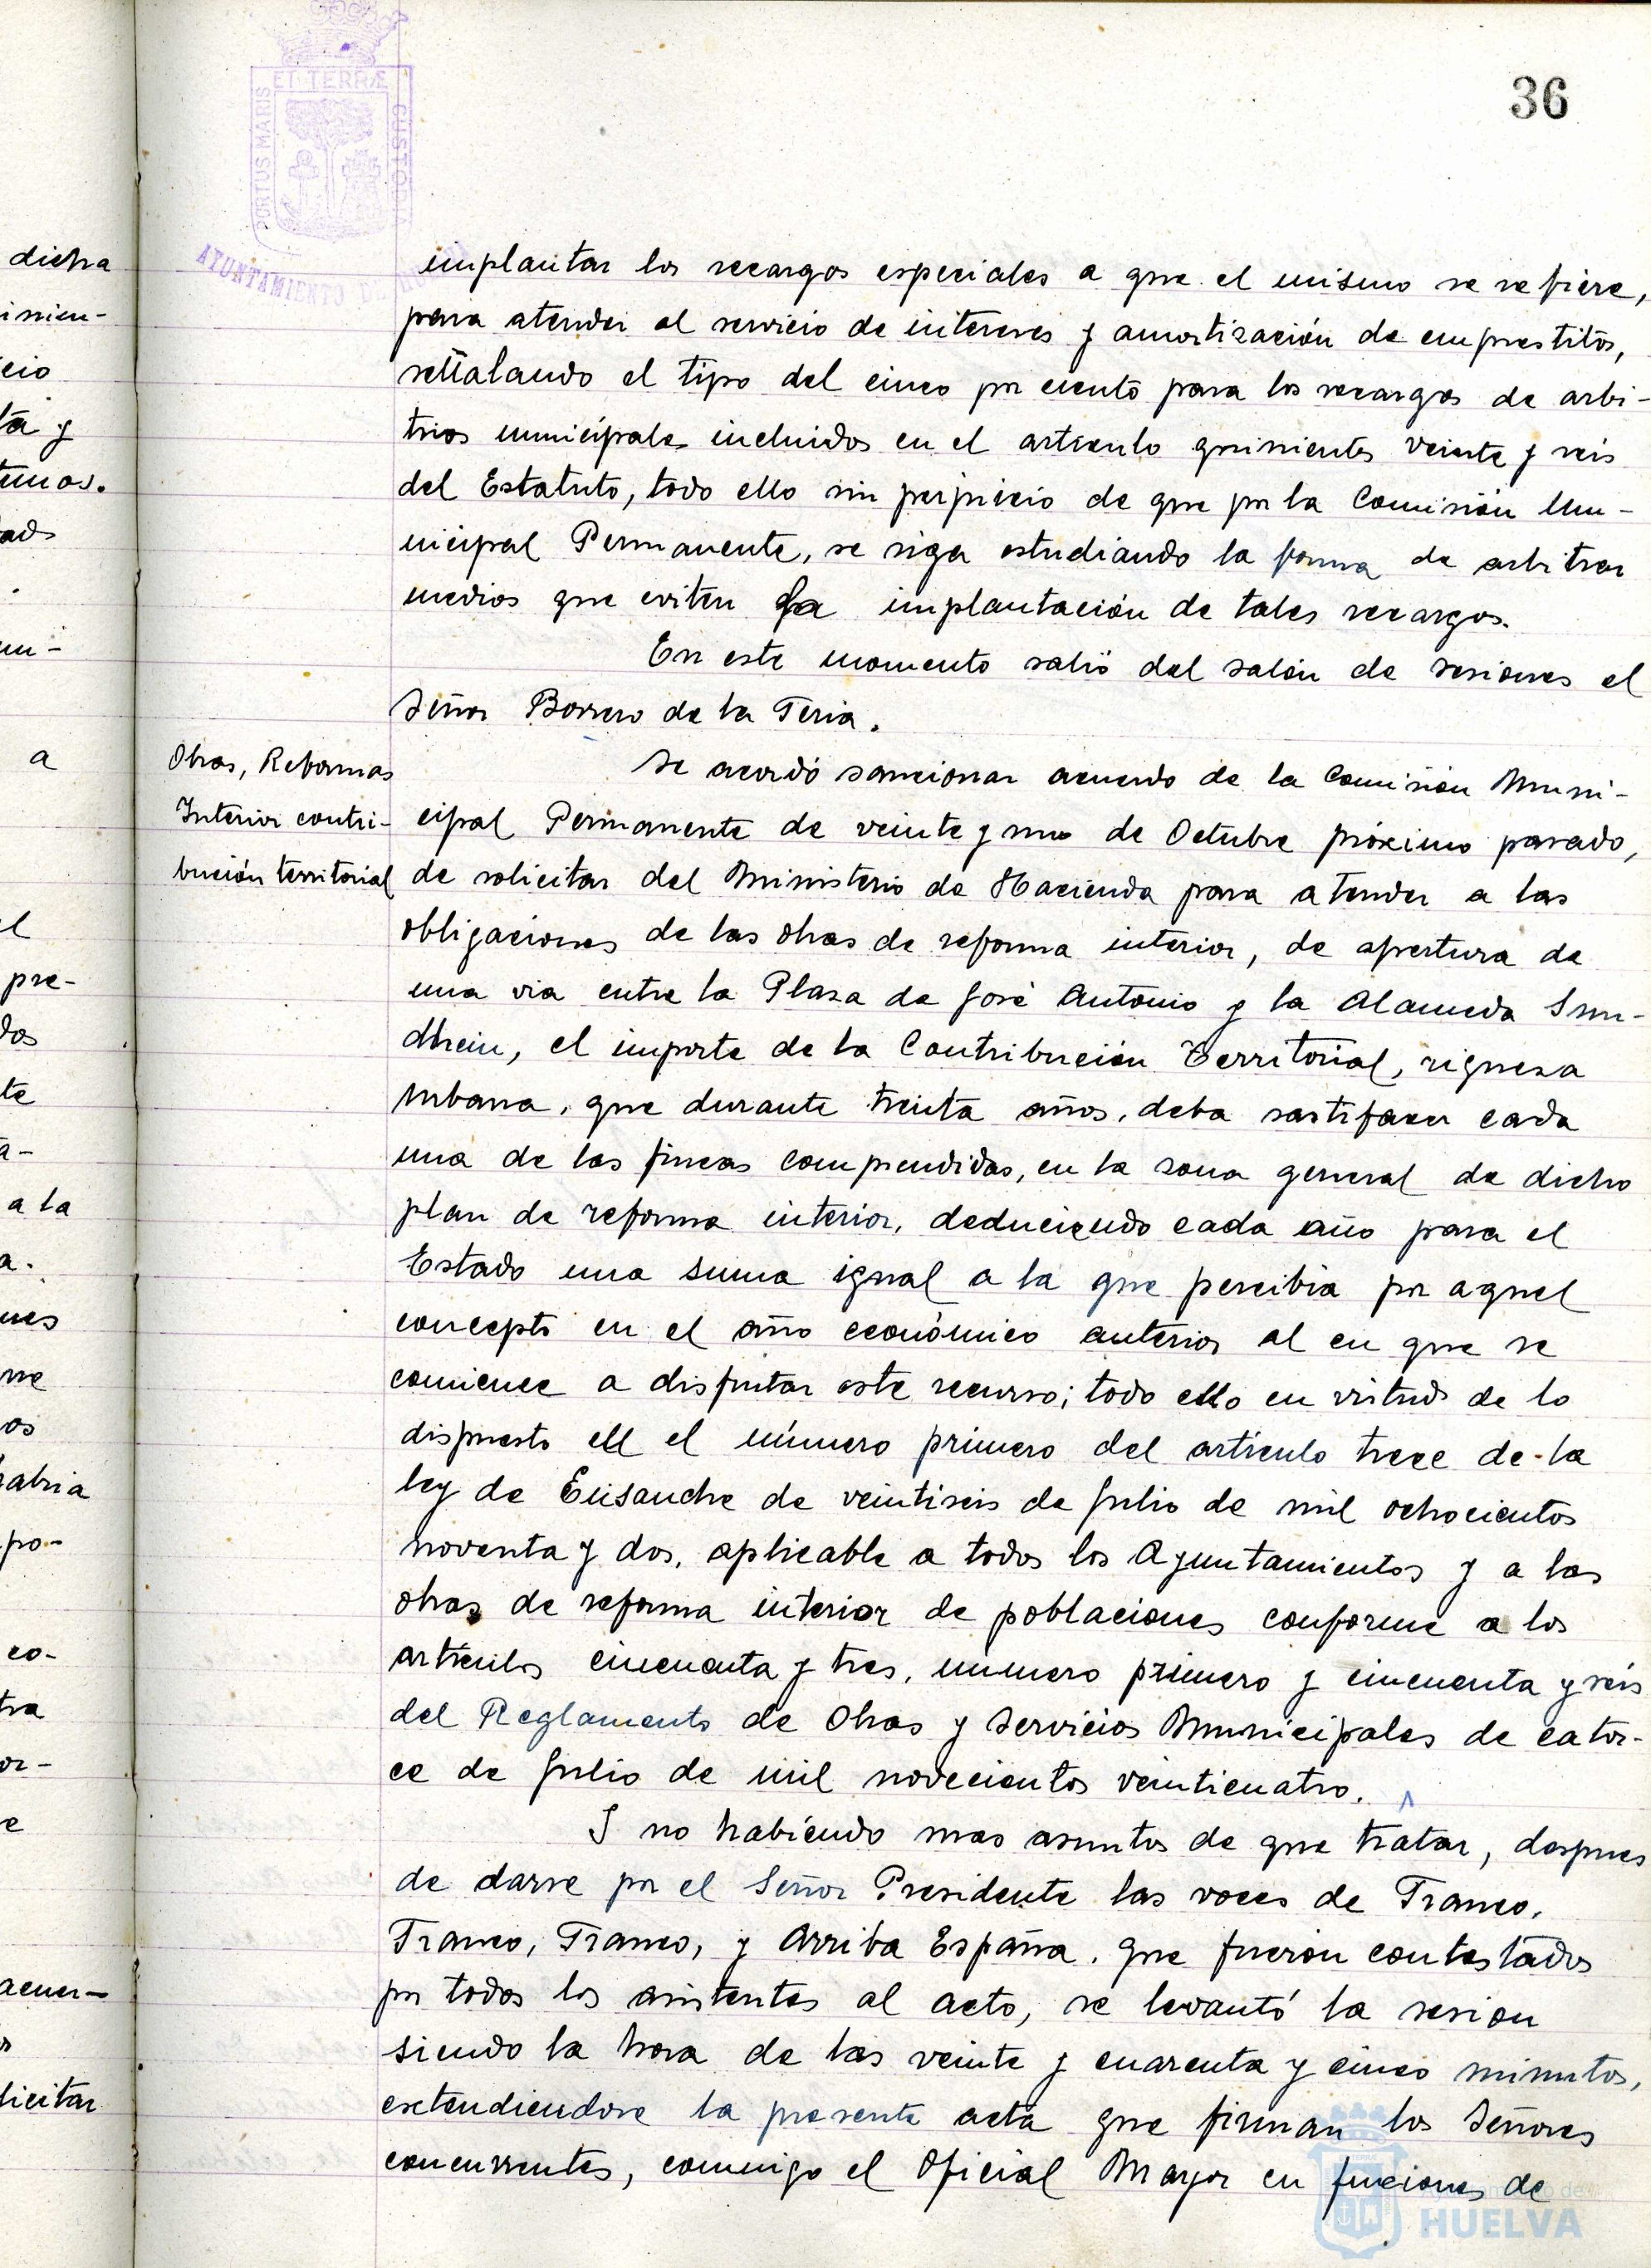 36
PORTUS MARIS
ET TERRÆ
CUSTODIA
AYUNTAMIENTO DE HUELVA
dicha
cio
ta y
a
pre-
dos
te
a la
abria
po-
co-
tra
or-
acuer-
licitar
implantar los recargos especiales a que el mismo se refiere,
para atender al servicio de intereses y amortización de emprestitos,
señalando el tipo del cinco por ciento para los recargos de arbi-
trios municipales incluidos en el articulo quinientos veinte y seis
del Estatuto, todo ello sin perjuicio de que por la Comisión Mu-
nicipal Permanente, se siga estudiando la forma de arbitrar
medios que eviten la implantación de tales recargos.
En este momento salió del salón de sesiones el
Señor Borrero de la Feria.
Obras, Reformas
Interior contri-
bución territorial
Se acordó sancionar acuerdo de la Comisión Muni-
cipal Permanente de veinte y uno de Octubre próximo pasado,
de solicitar del Ministerio de Hacienda para atender a las
obligaciones de las obras de reforma interior, de apertura de
una via entre la Plaza de José Antonio y la Alameda Sun-
dhein, el importe de la Contribución Territorial, riqueza
urbana, que durante treinta años, deba sastifacer cada
una de las fincas comprendidas, en la zona general de dicho
plan de reforma interior, deduciendo cada año para el
Estado una suma igual a la que percibia por aquel
concepto en el año económico anterior al en que se
comience a disfrutar este recurso; todo ello en virtud de lo
dispuesto en el número primero del articulo trece de la
ley de Ensanche de veintiseis de Julio de mil ochocientos
noventa y dos, aplicable a todos los Ayuntamientos y a las
obras de reforma interior de poblaciones conforme a los
articulos cincuenta y tres, numero primero y cincuenta y seis
del Reglamento de Obras y Servicios Municipales de cator-
ce de Julio de mil novecientos veinticuatro.
Y no habiendo mas asuntos de que tratar, despues
de darse por el Señor Presidente las voces de Franco,
Franco, Franco, y Arriba España, que fueron contestados
por todos los asistentes al acto, se levantó la sesion
siendo la hora de las veinte y cuarenta y cinco minutos,
extendiendose la presente acta que firman los Señores
concurrentes, conmigo el Oficial Mayor en funciones de
Ayuntamiento de
HUELVA